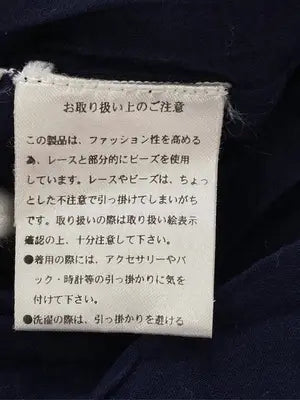 お取り扱い上のご注意
この製品は、ファッション性を高める
為、レースと部分的にビーズを使用
しています。レースやビーズは、ちょっ
とした不注意で引っ掛けてしまいがち
です。取り扱いの際は取り扱い絵表示
確認の上、十分注意して下さい。
●着用の際には、アクセサリーやバ
ック・時計等の引っ掛かりに気を
付けて下さい。
●洗濯の際は、引っ掛かりを避ける